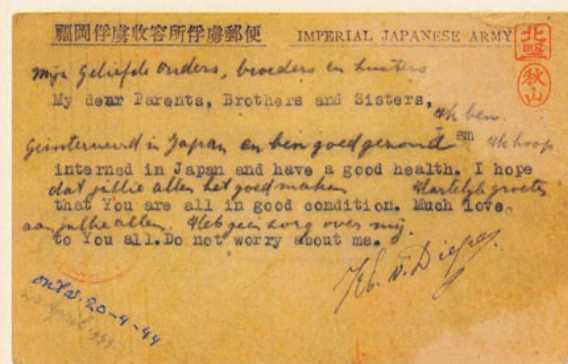 福岡俘虜收容所俘虜郵便 IMPERIAL JAPANESE ARMY
Mijn geliefde ouders, broeders en zusters
My dear Parents, Brothers and Sisters,
Ik ben
I am
geinterneerd in Japan en ben goed gezond
Ik hoop
interned in Japan and have a good health. I hope
dat jullie allen het goed maken
Hartelijk groeten
that You are all in good condition. Much love
aan jullie allen. Heb geen zorg over mij.
to You all. Do not worry about me.
20-4-44
秋山